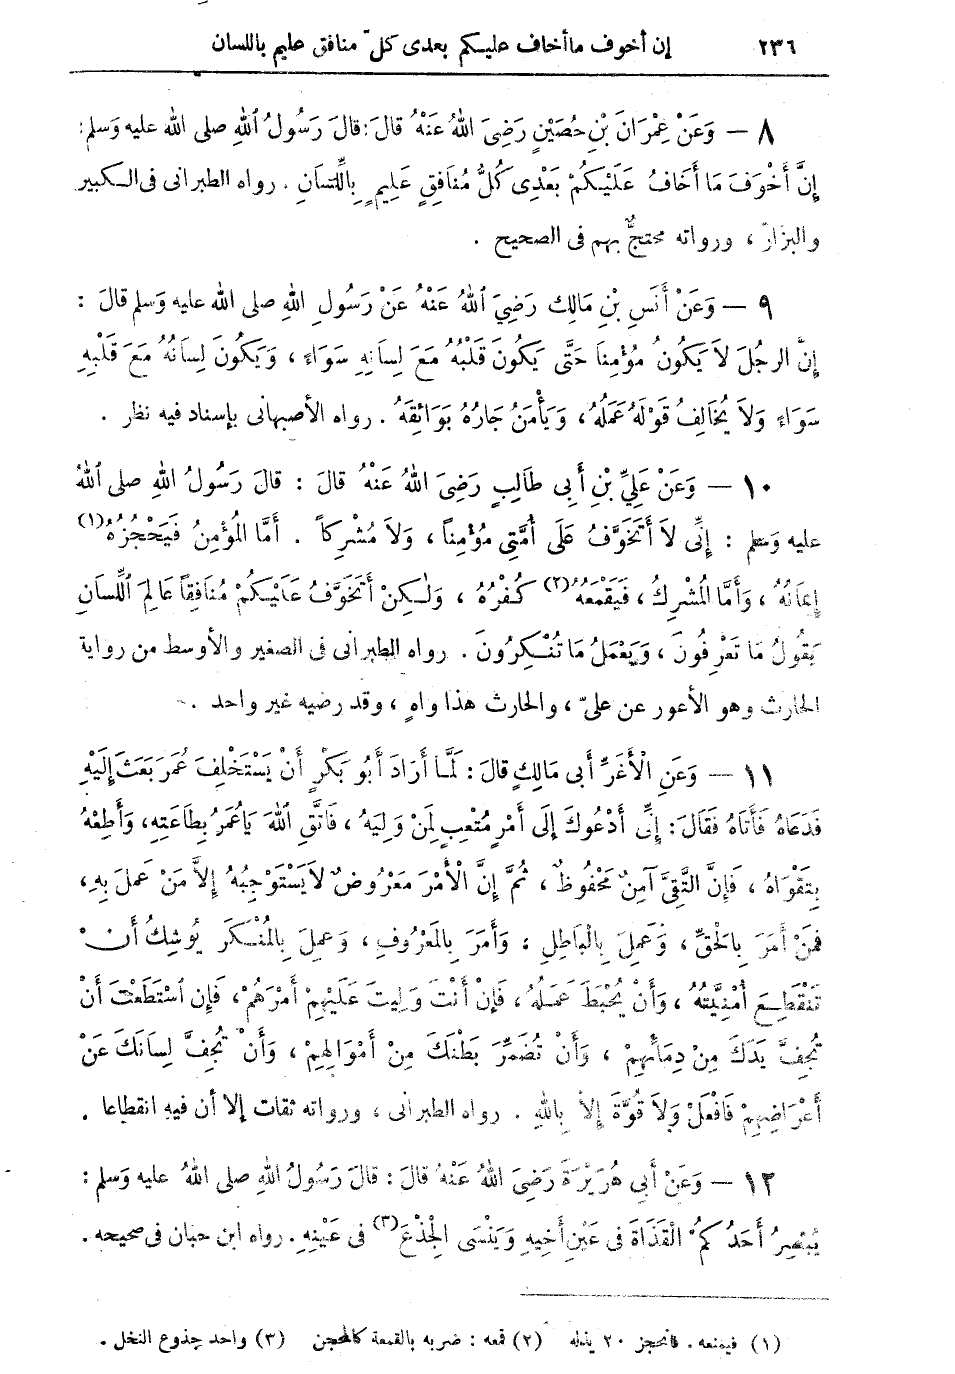 ٢٣٦ إن أخوف ما أخاف عليكم بعدى كلّ منافق عليم باللسان
٨ — وَعَنْ عِمْرَانَ بْنِ حُصَيْنٍ رَضِىَ اللهُ عَنْهُ قَالَ: قَالَ رَسُولُ اللهِ صلى الله عليه وَسلم:
إِنَّ أَخْوَفَ مَا أَخَافُ عَلَيْكُمْ بَعْدِى كُلُّ مُنَافِقٍ عَلِيمٍ بِاللِّسَانِ. رواه الطبرانى فى الكبير
والبزارّ، ورواته محتجٌّ بهم فى الصحيح.
٩ — وَعَنْ أَنَسِ بْنِ مَالِك رَضِيَ اللهُ عَنْهُ عَنْ رَسُولِ اللهِ صلى الله عليه وَسلم قالَ:
إِنَّ الرجُلَ لاَ يَكُونُ مُؤْمِناً حَتَّى يَكُونَ قَلْبُهُ مَعَ لِسَانِهِ سَوَاءً، وَيَكُونَ لِسَانُهُ مَعَ قَلْبِهِ
سَوَاءً وَلاَ يُخَالِفُ قَوْلَهُ عَمَلُهُ، وَيَأْمَنُ جَارُهُ بَوَائِقَهُ. رواه الأصبهانى بإسناد فيه نظر.
١٠ — وَعَنْ عَلِيِّ بْنِ أَبِى طَالِبٍ رَضِىَ اللهُ عَنْهُ قالَ: قَالَ رَسُولُ اللهِ صلى اللهُ
عليه وَسلم: إِنِّى لاَ أَتَخَوَّفُ عَلَى أُمَّتِى مُؤْمِناً، وَلاَ مُشْرِكاً. أَمَّا المُؤْمِنُ فَيَحْجُزُهُ(١)
إِيمَانُهُ، وَأَمَّا المُشْرِكُ، فَيَقْمَعُهُ(٢) كُفْرُهُ، وَلٰكِنْ أَتَخَوَّفُ عَلَيْكُمْ مُنَافِقاً عَالِمَ اللِّسَانِ
يَقُولُ مَا تَعْرِفُونَ، وَيَعْمَلُ مَا تُنْكِرُونَ. رواه الطبرانى فى الصغير والأوسط من رواية
الحارث وهو الأعور عن علىّ، والحارث هذا واهٍ، وقد رضيه غير واحد.
١١ — وَعَنِ الْأَغَرِّ أَبِى مَالِكٍ قَالَ: لَمَّا أَرَادَ أَبُو بَكْرٍ أَنْ يَسْتَخْلِفَ عُمَرَ بَعَثَ إِلَيْهِ
فَدَعَاهُ فَأَتَاهُ فَقَالَ: إِنِّى أَدْعُوكَ إِلَى أَمْرٍ مُتْعِبٍ لِمَنْ وَلِيَهُ، فَاتَّقِ اللهَ يَاعُمَرُ بِطَاعَتِهِ، وَأَطِعْهُ
بِتَقْوَاهُ، فَإِنَّ التَّقِىَّ آمِنٌ مَحْفُوظٌ، ثُمَّ إِنَّ الْأَمْرَ مَعْرُوضٌ لاَ يَسْتَوْجِبُهُ إِلاَّ مَنْ عَمِلَ بِهِ،
فَمَنْ أَمَرَ بِالحَقِّ، وَعَمِلَ بِالْبَاطِلِ، وَأَمَرَ بِالمَعْرُوفِ، وَعَمِلَ بِالمُنْكَرِ يُوشِكُ أَنْ
تَنْقَطِعَ أُمْنِيَّتُهُ، وَأَنْ يُحْبَطَ عَمَلُهُ، فَإِنْ أَنْتَ وَلِيتَ عَلَيْهِمْ أَمْرَهُمْ، فَإِنِ اسْتَطَعْتَ أَنْ
تُجِفَّ يَدَكَ مِنْ دِمَائِهِمْ، وَأَنْ تُضَمِّرَ بَطْنَكَ مِنْ أَمْوَالِهِمْ، وَأَنْ تُجِفَّ لِسَانَكَ عَنْ
أَعْرَاضِهِمْ فَافْعَلْ وَلاَ قُوَّةَ إِلاَّ بِاللهِ. رواه الطبرانى، ورواته ثقات إلا أن فيه انقطاعا.
١٢ — وَعَنْ أَبِى هُرَيْرَةَ رَضِىَ اللهُ عَنْهُ قَالَ: قَالَ رَسُولُ اللهِ صلى اللهُ عليه وَسلم:
يُبْصِرُ أَحَدُكُمُ الْقَذَاةَ فِى عَيْنِ أَخِيهِ وَيَنْسَى الْجِذْعَ(٣) فى عَيْنِهِ. رواه ابن حبان فى صحيحه.
(١) فيمنعه. فانحجز ٢٠ يذله (٢) قمعه: ضربه بالقمعة كالمحجن (٣) واحد جذوع النخل.